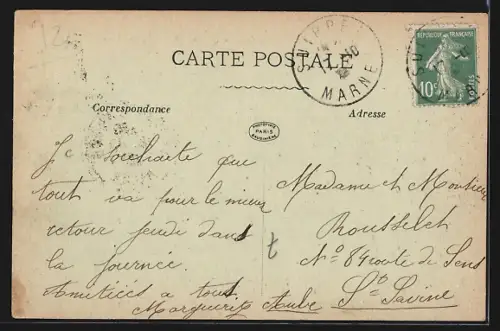 CARTE POSTALE
SUIPPE
MARNE
RÉPUBLIQUE FRANÇAISE
10c
POSTES
Correspondance
Adresse
PARIS
Je souhaite que
tout va pour le mieux
retour jeudi dans
la journée.
Amitiés a tous
Marguerite
Madame et Monsieur
Rousselet
No 84 route de Sens
Ste Savine
Aube
t